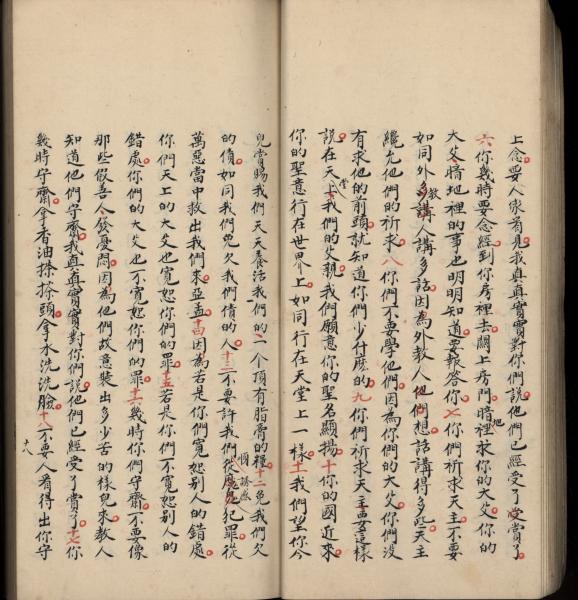 上念要人家看見我真真實實對你們說他們已經受了受賞了
六你幾時要念經到你房裡去關上房門暗裡地求你的大父你的
大父暗地裡的事也明明知道要報答你七你們祈求天主不要
如同外教多講人講多話因為外教人他們想話講得多些天主
纔允他們的祈求八你們不要學他們因為你們的大父你們沒
有求他的前頭就知道你們少什麽的九你們祈求天主要這樣
說在天上堂我們的父親我們願意你的聖名顯揚十你的國近來
你的聖意行在世界上如同行在天堂上一樣十一我們望你今
兒賞賜我們天天養活我們的一个頂有脂膏的糧十二免我們欠
的債如同我們免欠我們債的人十三不要許我們從魔鬼誘感犯罪從
萬惡當中救出我們來亞孟十四因為若是你們寬恕別人的錯處
你們天上的大父也寬恕你們的罪十五若是你們不寬恕別人的
錯處你們的大父也不寬恕你們的罪十六幾時你們守齋不要像
那些假善人發憂悶因為他們故意裝出多少苦的樣兒來教人
知道他們守齋我真真實實對你們說他們已經受了賞了十七你
幾時守齋拿香油搽搽頭拿水洗洗臉十八不要人看得出你守
十八